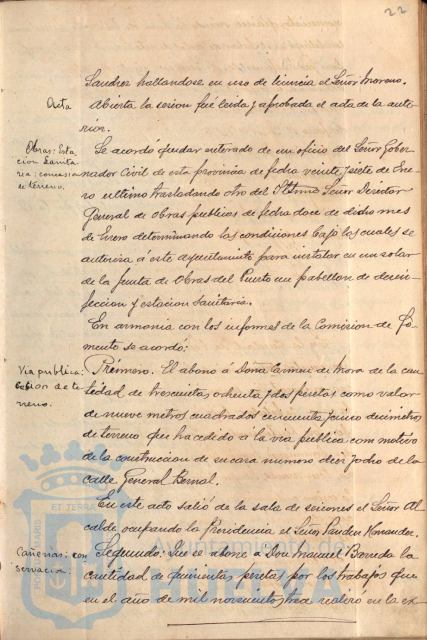 22
Sandres hallandose en uso de licencia el Señor Moreno.
Acta
Abierta la sesion fué leida y aprobada el acta de la ante-
rior.
Obras: Esta
cion Sanita
ria: concesion
de terreno.
Se acordó quedar enterado de un oficio del Señor Gober-
nador Civil de esta provincia de fecha veinte y siete de Ene-
ro ultimo trasladando otro del Iltmo Señor Director
General de Obras publicas de fecha doce de dicho mes
de Enero determinando las condiciones bajo las cuales se
autoriza á este ayuntamiento para instalar en un solar
de la Junta de Obras del Puerto un pabellon de desin-
feccion y estacion sanitaria.
En armonia con los informes de la Comision de Fo-
mento se acordó:
Via publica:
Cesion de te
rreno.
Primero. El abono á Doña Carmen de Mora de la can-
tidad de trescientas ochenta y dos pesetas como valor
de nueve metros cuadrados cincuenta y cinco decimetros
de terreno que ha cedido a la via publica con motivo
de la construccion de su casa numero diez y ocho de la
calle General Bernal.
En este acto salió de la sala de sesiones el Señor Al-
calde ocupando la Presidencia el Señor Hernandez.
Cañerias: con
servacion.
Segundo: Que se abone a Don Manuel Borredo la
cantidad de quinientas pesetas por los trabajos que
en el año de mil novecientos tres realizó en la ex-
PORTUS MARIS
ET TERRAE
Ayuntamiento de
HUELVA